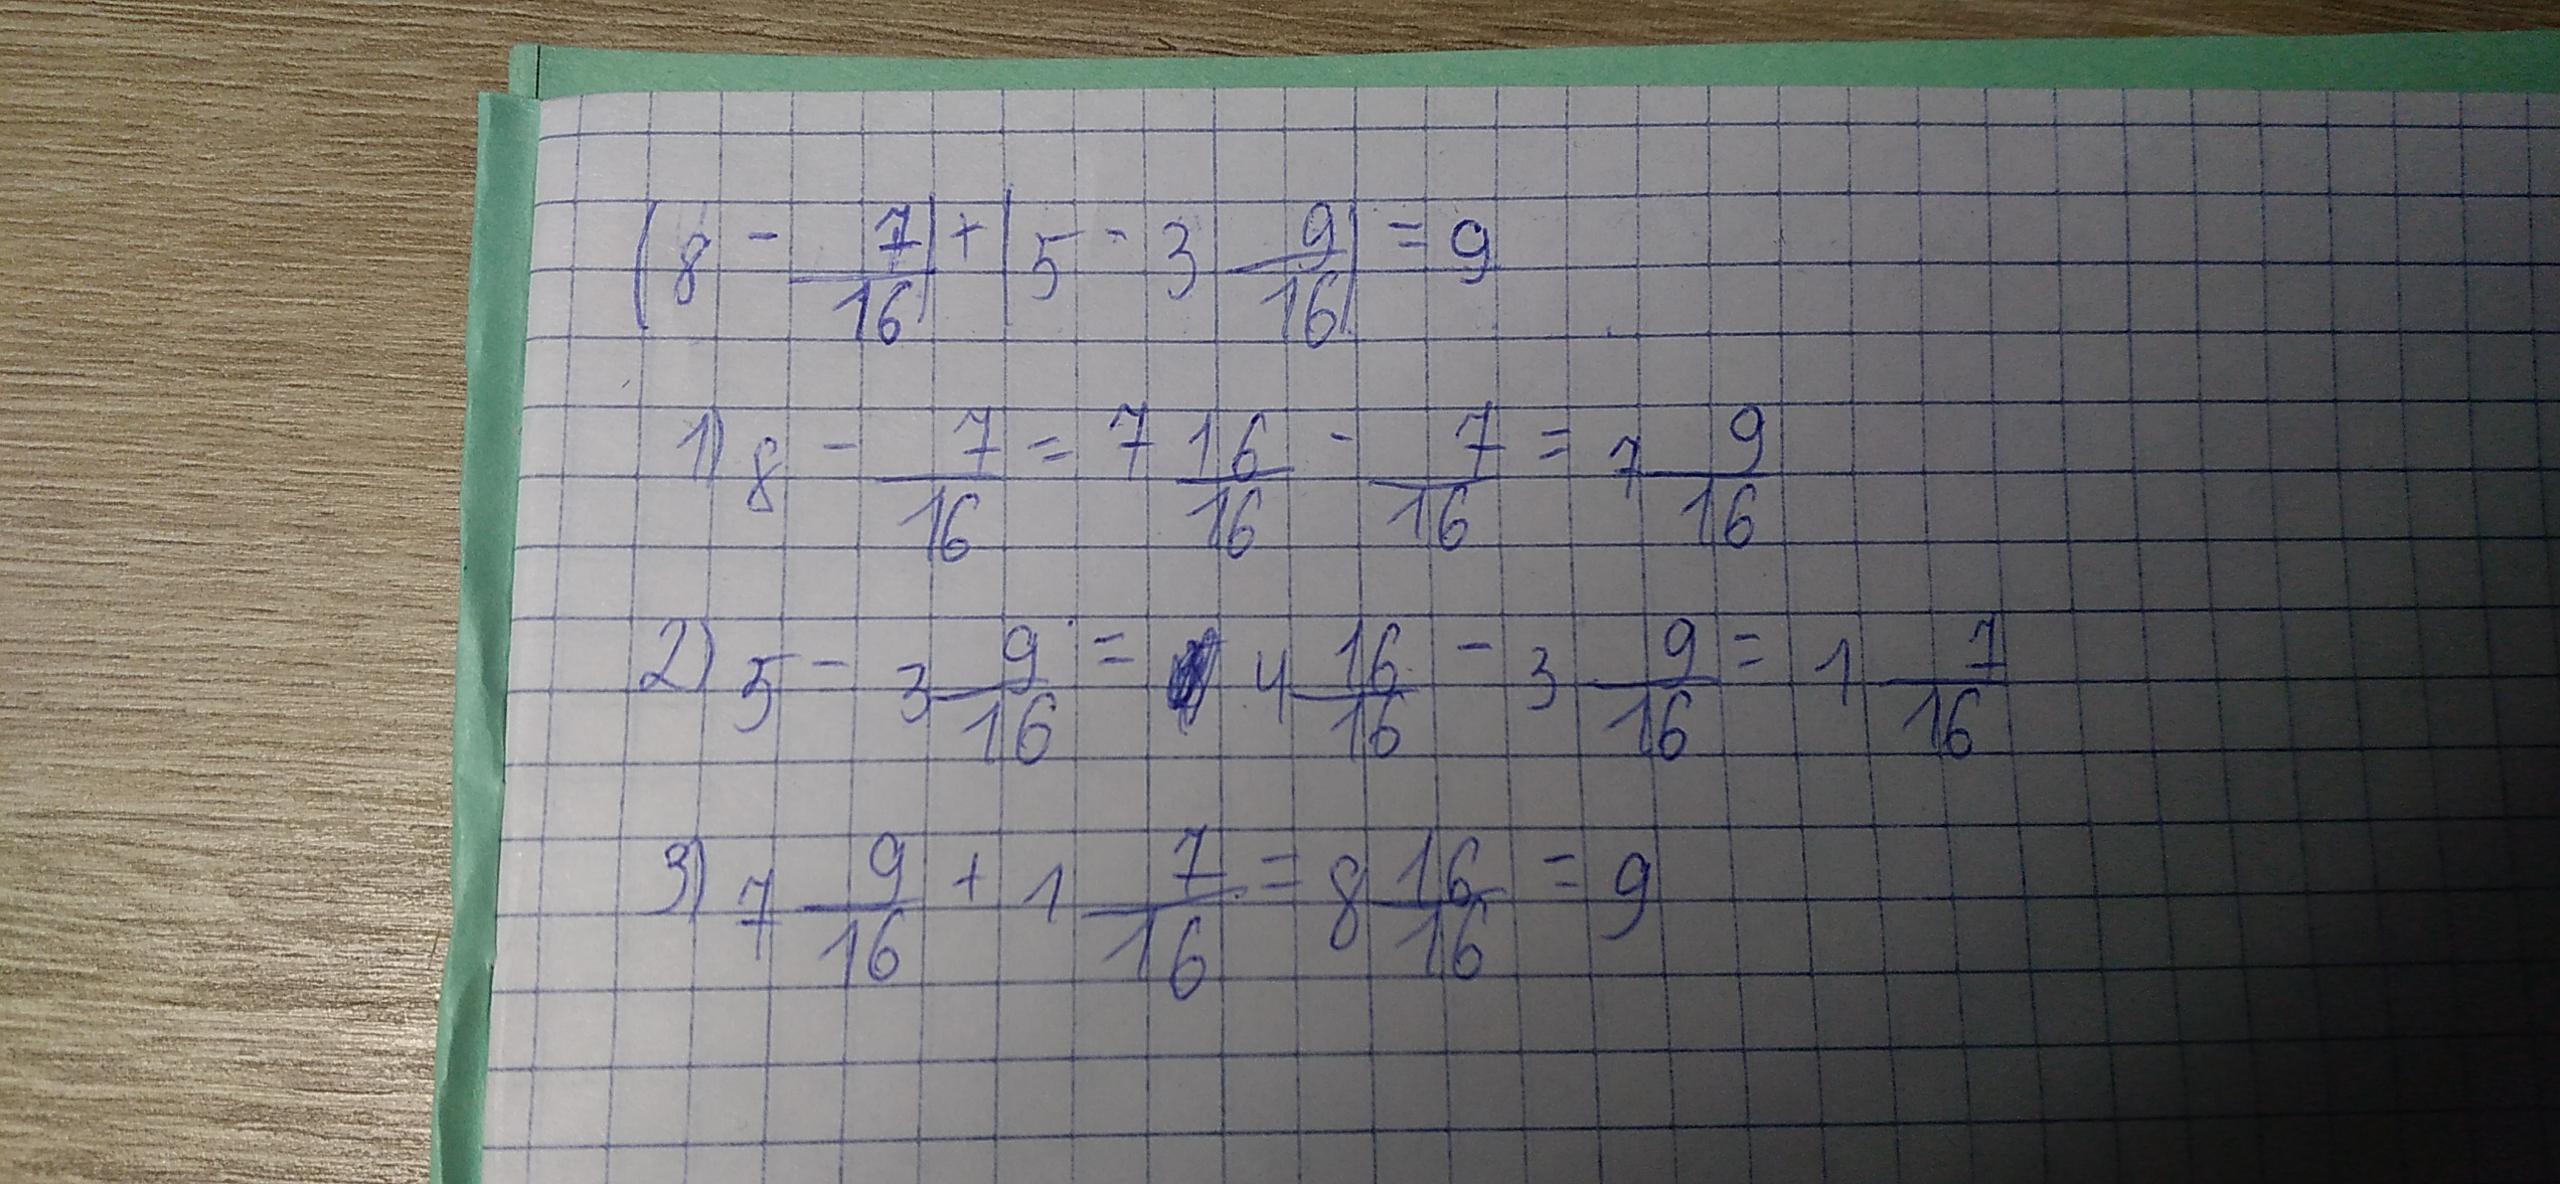 (8 - 7/16) + (5 - 3 9/16) = 9
1) 8 - 7/16 = 7 16/16 - 7/16 = 7 9/16
2) 5 - 3 9/16 = 4 16/16 - 3 9/16 = 1 7/16
3) 7 9/16 + 1 7/16 = 8 16/16 = 9